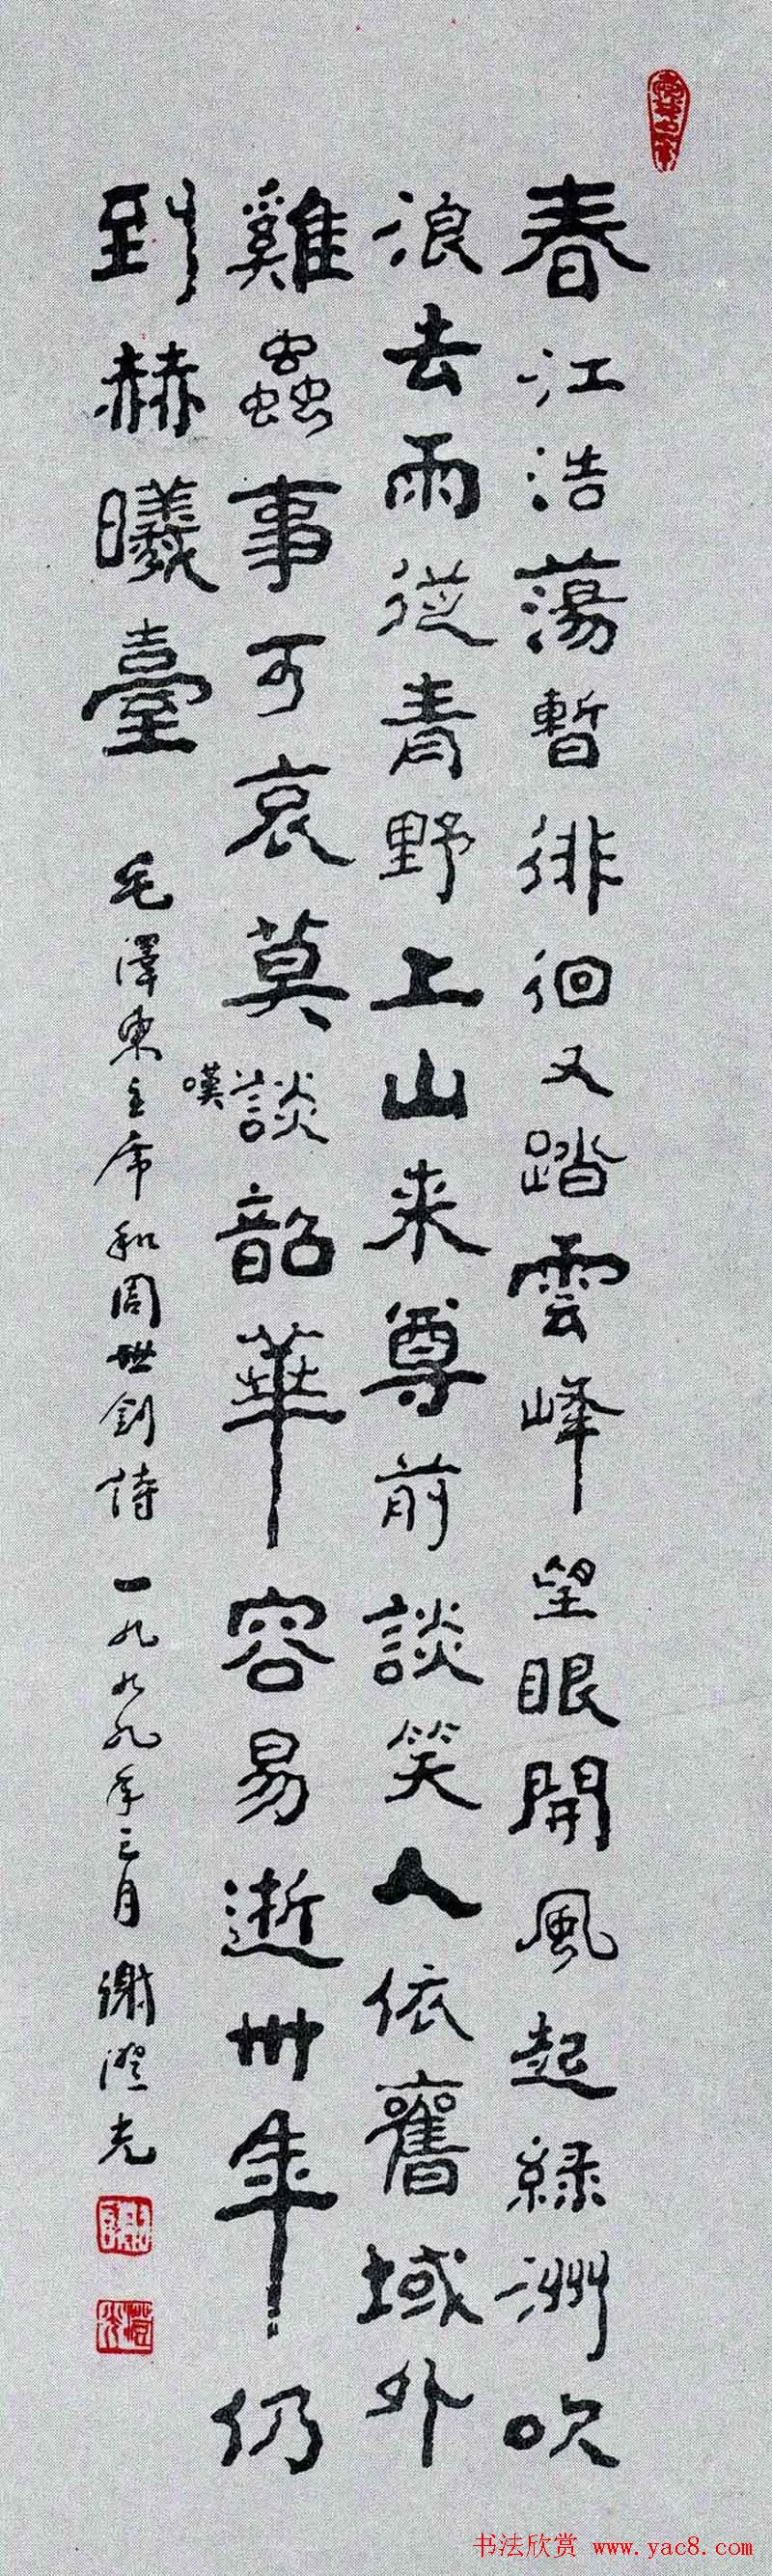 春江浩蕩暫徘徊又踏雲峰望眼開風起綠洲吹
浪去雨從青野上山来尊前談笑人依舊域外
雞蟲事可哀莫談韶華容易逝卅年仍
嘆
到赫曦臺
毛澤東主席和周世釗詩 一九九九年三月 謝澄光
书法欣赏 www.yac8.com